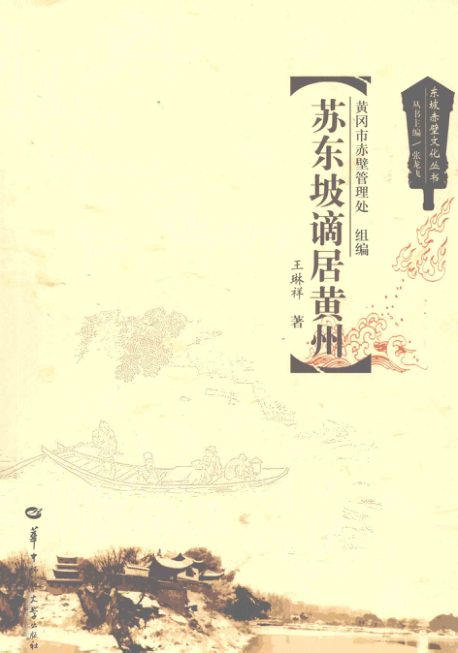 东坡赤壁文化丛书
丛书主编/张龙飞
黄冈市赤壁管理处 组编
【苏东坡谪居黄州】
王琳祥 著
华中师范大学出版社